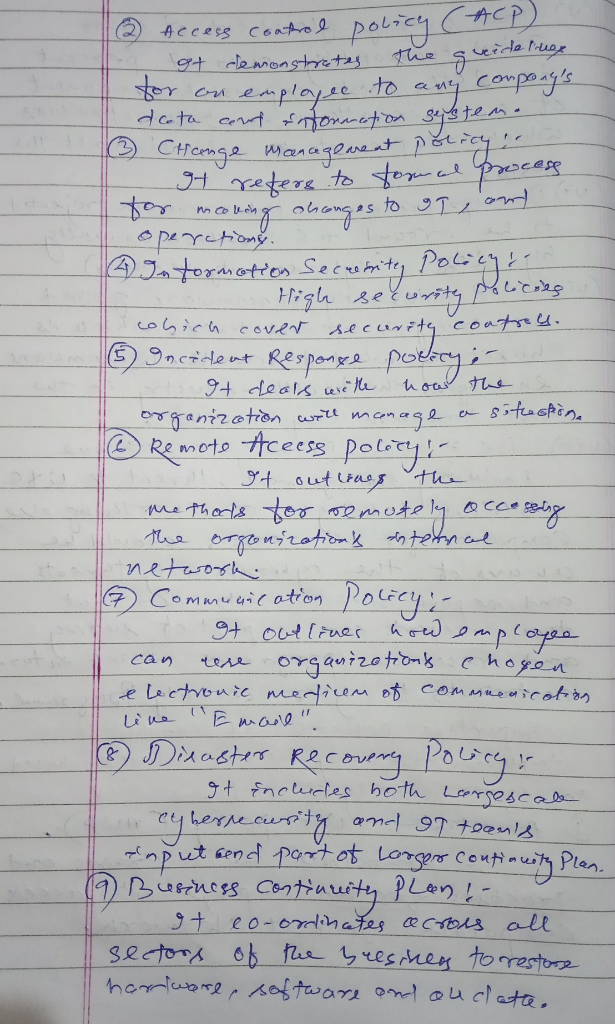 ② Access Control policy (ACP)
It demonstrates the guidelines
for an employee to any company's
data and information system.
③ Change management policy :-
It refers to formal process
for making changes to IT, and
operations.
④ Information Security Policy :-
High security policies
which cover security controls.
⑤ Incident Response policy :-
It deals with how the
organization will manage a situation.
⑥ Remote Access policy :-
It outlines the
methods for remotely accessing
the organization's internal
network.
⑦ Communication Policy :-
It outlines how employee
can use organization's chosen
electronic medium of communication
like "Email".
⑧ Disaster Recovery Policy :-
It includes both largescale
cybersecurity and IT team's
input and part of larger continuity Plan.
⑨ Business Continuity Plan :-
It co-ordinates across all
sectors of the business to restore
hardware, software and all data.